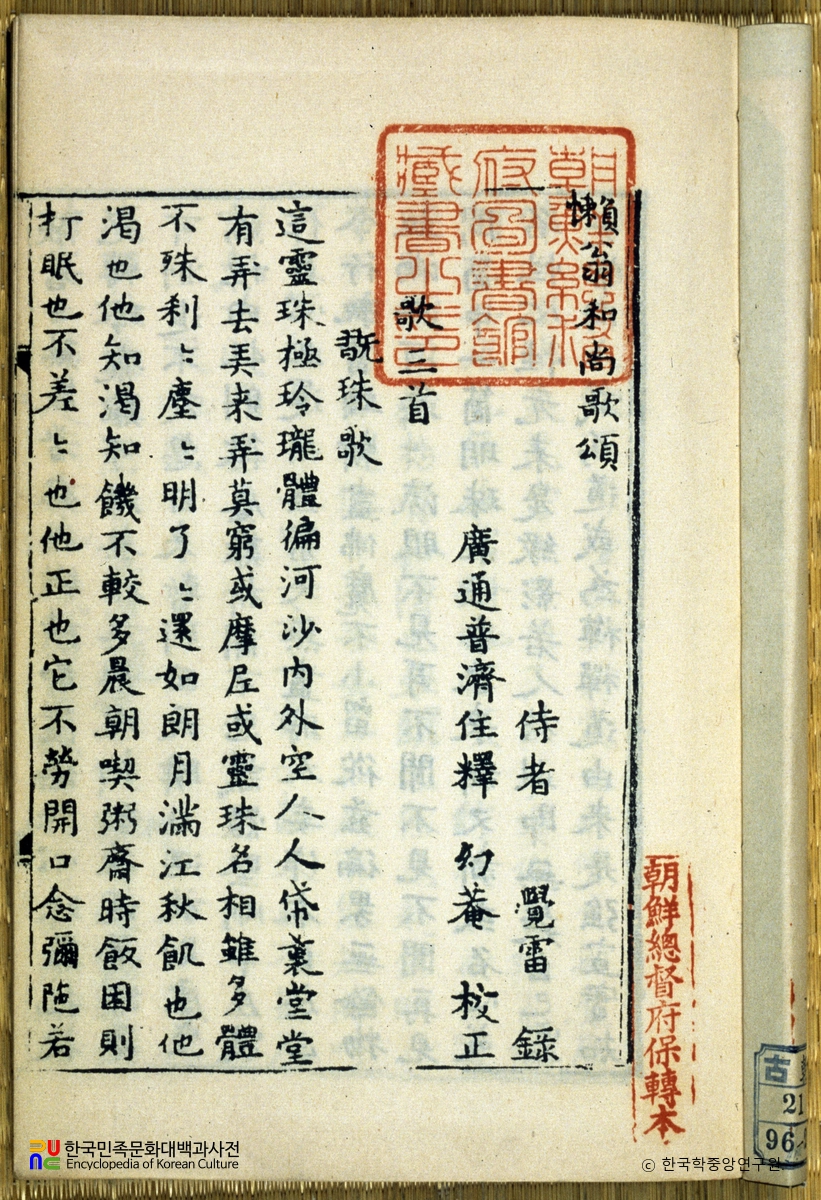 懶翁和尚歌頌
侍者 覺雷 錄
廣通普濟住釋 幻菴 校正
歌三首
翫珠歌
這靈珠極玲瓏體徧河沙内外空人人帒裏堂堂
有弄去弄来弄莫窮或摩尼或靈珠名相雖多體
不殊刹〻塵〻明了〻還如朗月滿江秋飢也他
渴也他知渴知饑不較多晨朝喫粥齋時飯困則
打眠也不差〻也他正也它不勞開口念彌陁若
朝鮮總督府圖書館藏書之印
朝鮮總督府保轉本
古
21
96
한국민족문화대백과사전
Encyclopedia of Korean Culture
ⓒ 한국학중앙연구원